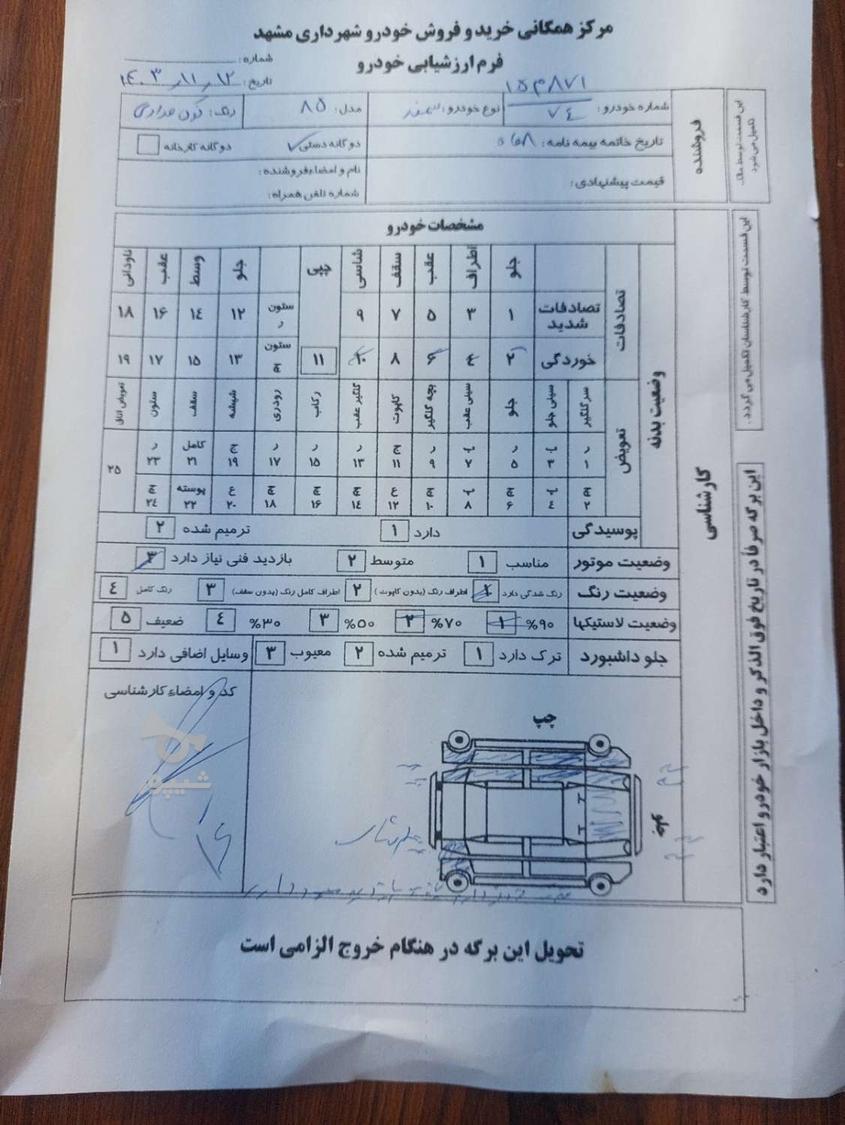 مرکز همگانی خرید و فروش خودرو شهرداری مشهد
فرم ارزشیابی خودرو
شماره:
تاریخ: ۱۴۰۳/۱۱/۱۲
این قسمت توسط مالک تکمیل می شود
فروشنده
شماره خودرو: ۷۴
نوع خودرو: سمند
مدل: ۸۵
رنگ:
تاریخ خاتمه بیمه نامه:
دوگانه دستی
دوگانه کارخانه
قیمت پیشنهادی:
نام و امضاء فروشنده:
شماره تلفن همراه:
این قسمت توسط کارشناسان تکمیل می گردد.
کارشناسی
مشخصات خودرو
وضعیت بدنه
تصادفات
جلو اطراف عقب سقف شاسی جلو وسط عقب ناودانی
تصادفات شدید ۱ ۳ ۵ ۷ ۹ ستون ر ۱۲ ۱۴ ۱۶ ۱۸
خوردگی ۲ ۴ ۶ ۸ ۱۰ ۱۱ ستون چ ۱۳ ۱۵ ۱۷ ۱۹
تعویض
سر گلگیر سینی جلو جلو سینی عقب بچه گلگیر کاپوت گلگیر عقب رکاب رودری شیشه سقف ستون تعویض اتاق
ر ۱ پ ۳ ر ۵ پ ۷ ر ۹ ج ۱۱ ر ۱۳ ر ۱۵ ر ۱۷ ج ۱۹ کامل ۲۱ ر ۲۳ ۲۵
چ ۲ پ ۴ چ ۶ پ ۸ چ ۱۰ ع ۱۲ چ ۱۴ چ ۱۶ چ ۱۸ ع ۲۰ پوسته ۲۲ چ ۲۴
پوسیدگی دارد ۱ ترمیم شده ۲
وضعیت موتور مناسب ۱ متوسط ۲ بازدید فنی نیاز دارد ۳
وضعیت رنگ رنگ شدگی دارد ۱ اطراف رنگ (بدون کاپوت) ۲ اطراف کامل رنگ (بدون سقف) ۳ رنگ کامل ۴
وضعیت لاستیکها ۹۰% ۱ ۷۰% ۲ ۵۰% ۳ ۳۰% ۴ ضعیف ۵
جلو داشبورد ترک دارد ۱ ترمیم شده ۲ معیوب ۳ وسایل اضافی دارد ۱
کد و امضاء کارشناسی
چپ
شیپور
این برگه صرفاً در تاریخ فوق الذکر و داخل بازار خودرو اعتبار دارد
تحویل این برگه در هنگام خروج الزامی است